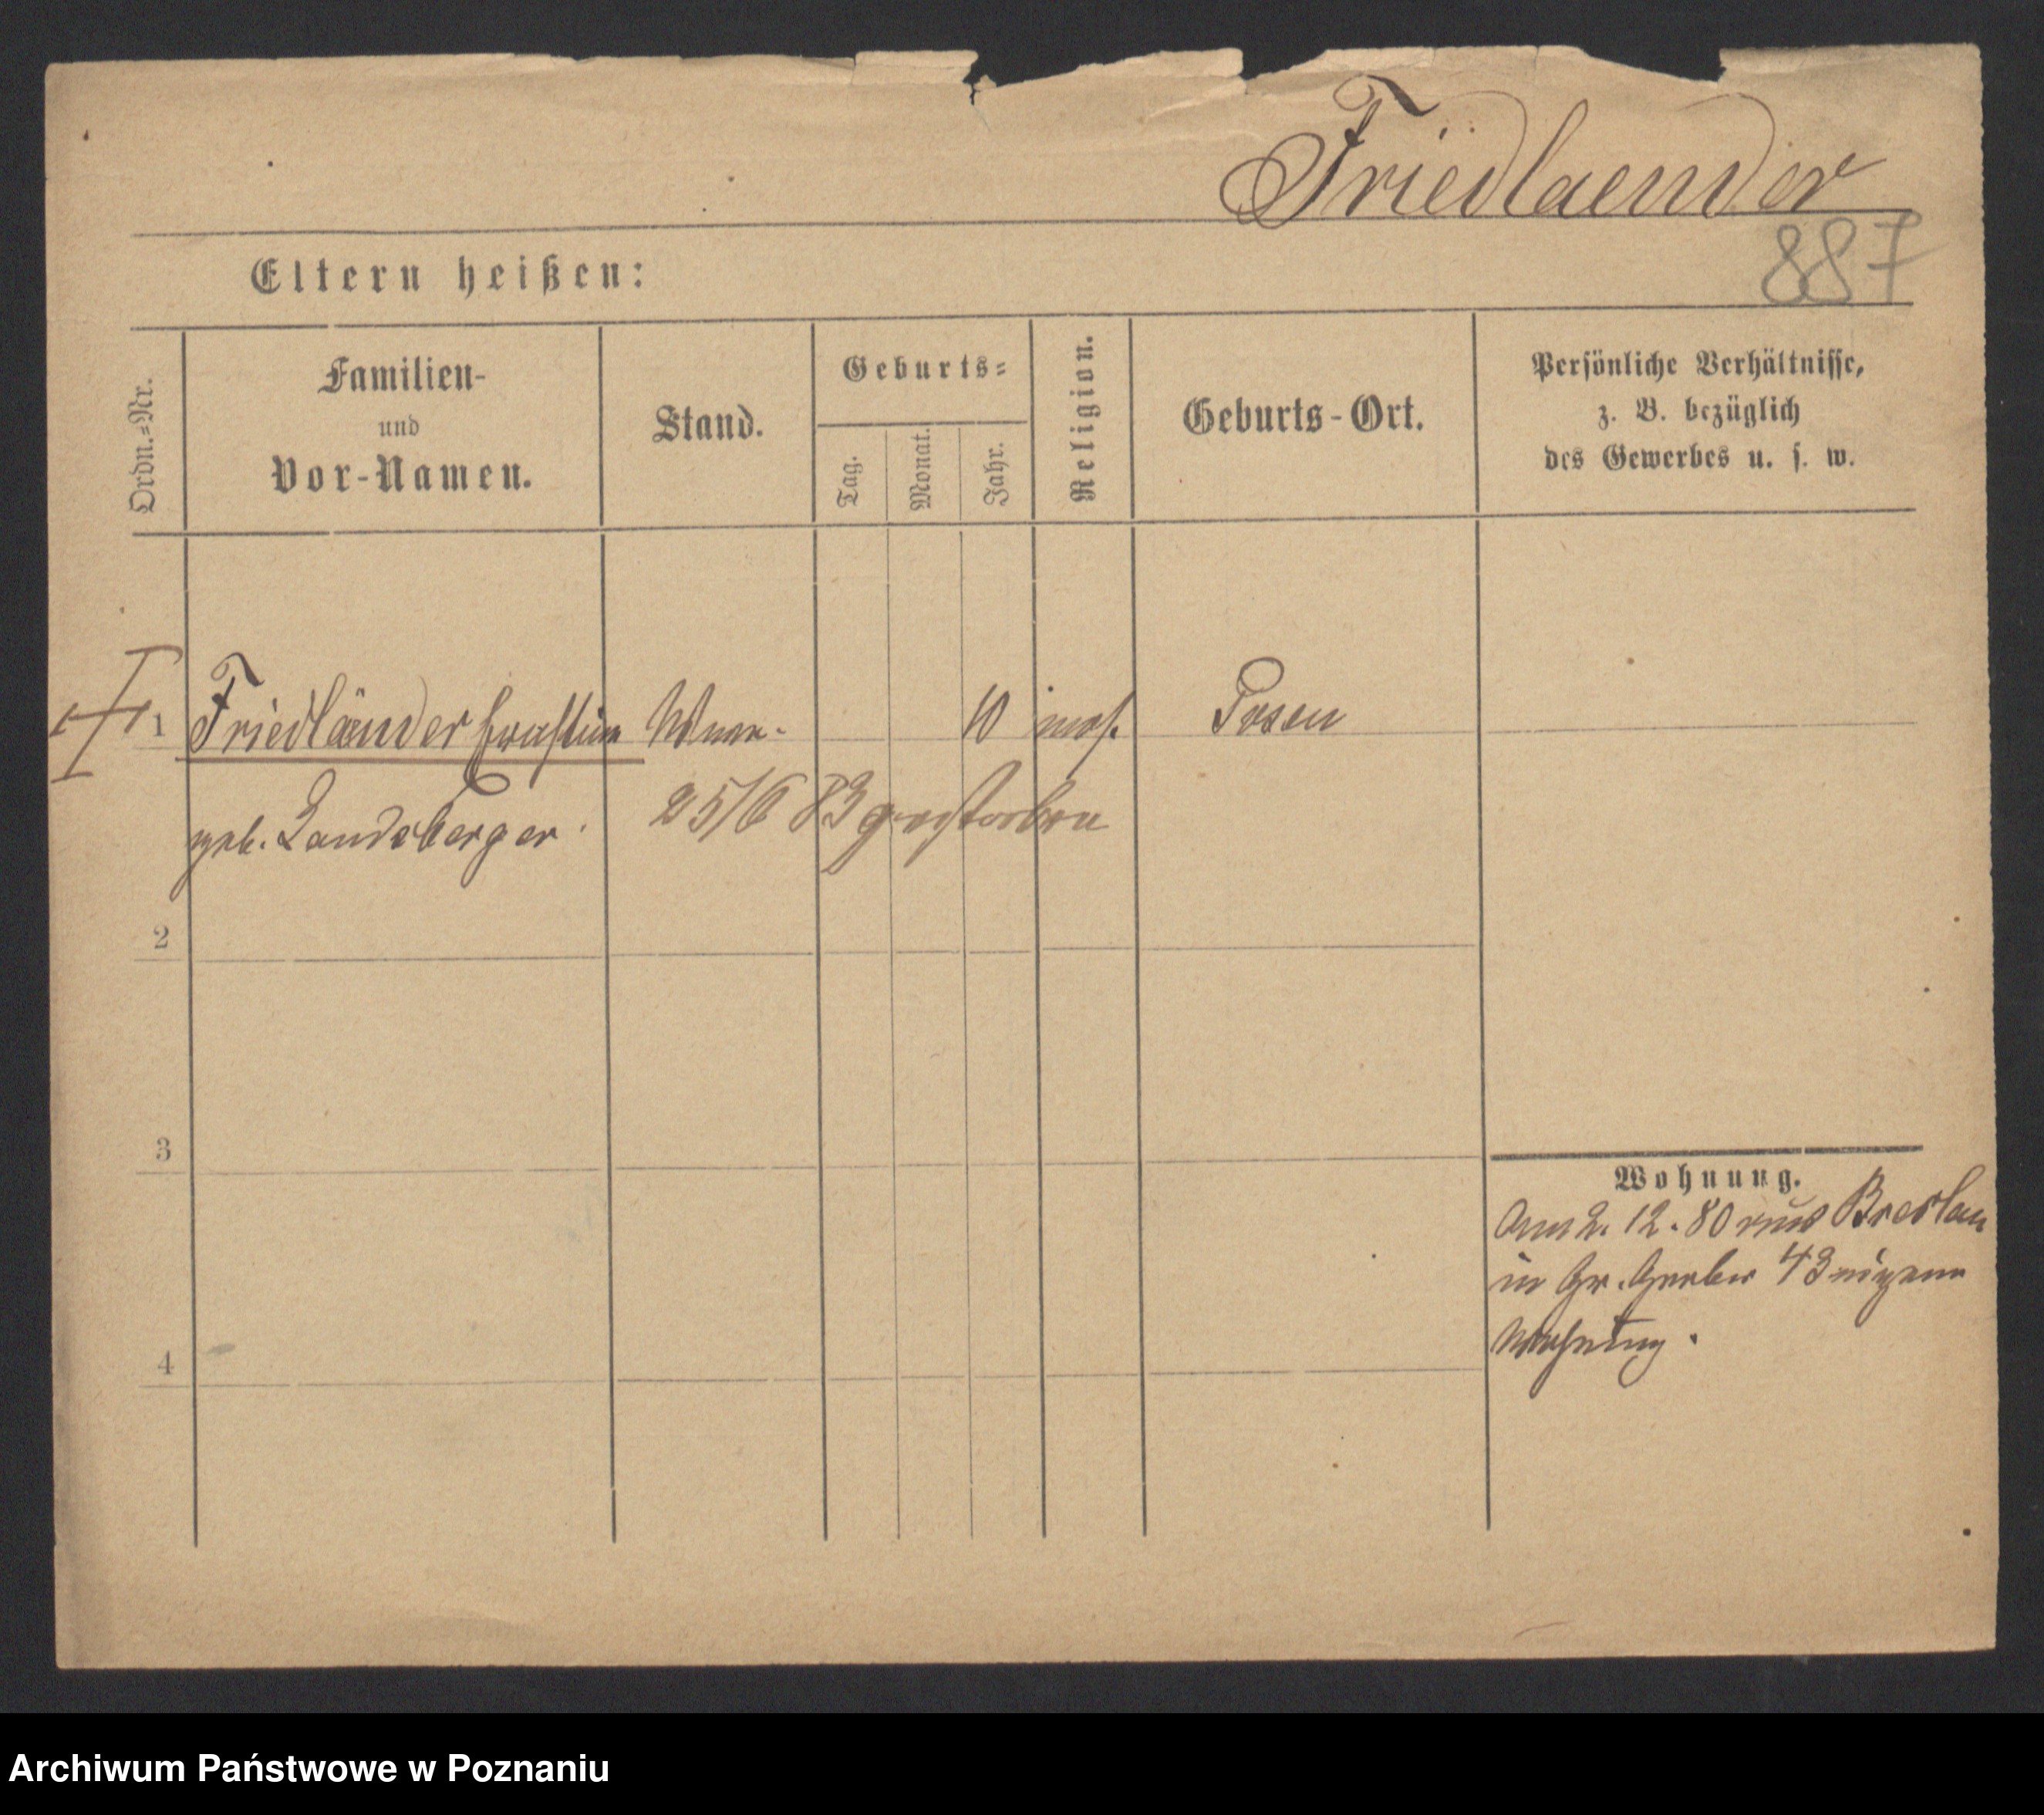 Friedlaender
887
Eltern heißen:
Ordn.=Nr.
Familien-
und
Vor-Namen.
Stand.
Geburts=
Tag.
Monat.
Jahr.
Religion.
Geburts-Ort.
Persönliche Verhältnisse,
z. B. bezüglich
des Gewerbes u. s. w.
1 Friedländer 10 mos. Posen
geb. Landsberger 25/6 83 gestorben
2
3
4
Wohnung.
Am 2. 12. 80 aus Breslau
in Gr. Gerber 43 eigene
Wohnung.
Archiwum Państwowe w Poznaniu